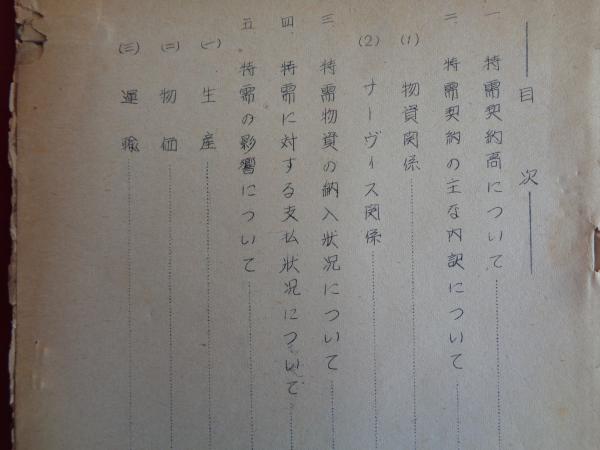 目次
一 特需契約高について
二 特需契約の主な内訳について
(1) 物資関係
(2) サーヴィス関係
三 特需物資の納入狀況について
四 特需に対する支払狀況について
五 特需の影響について
(一) 生産
(二) 物価
(三) 運輸